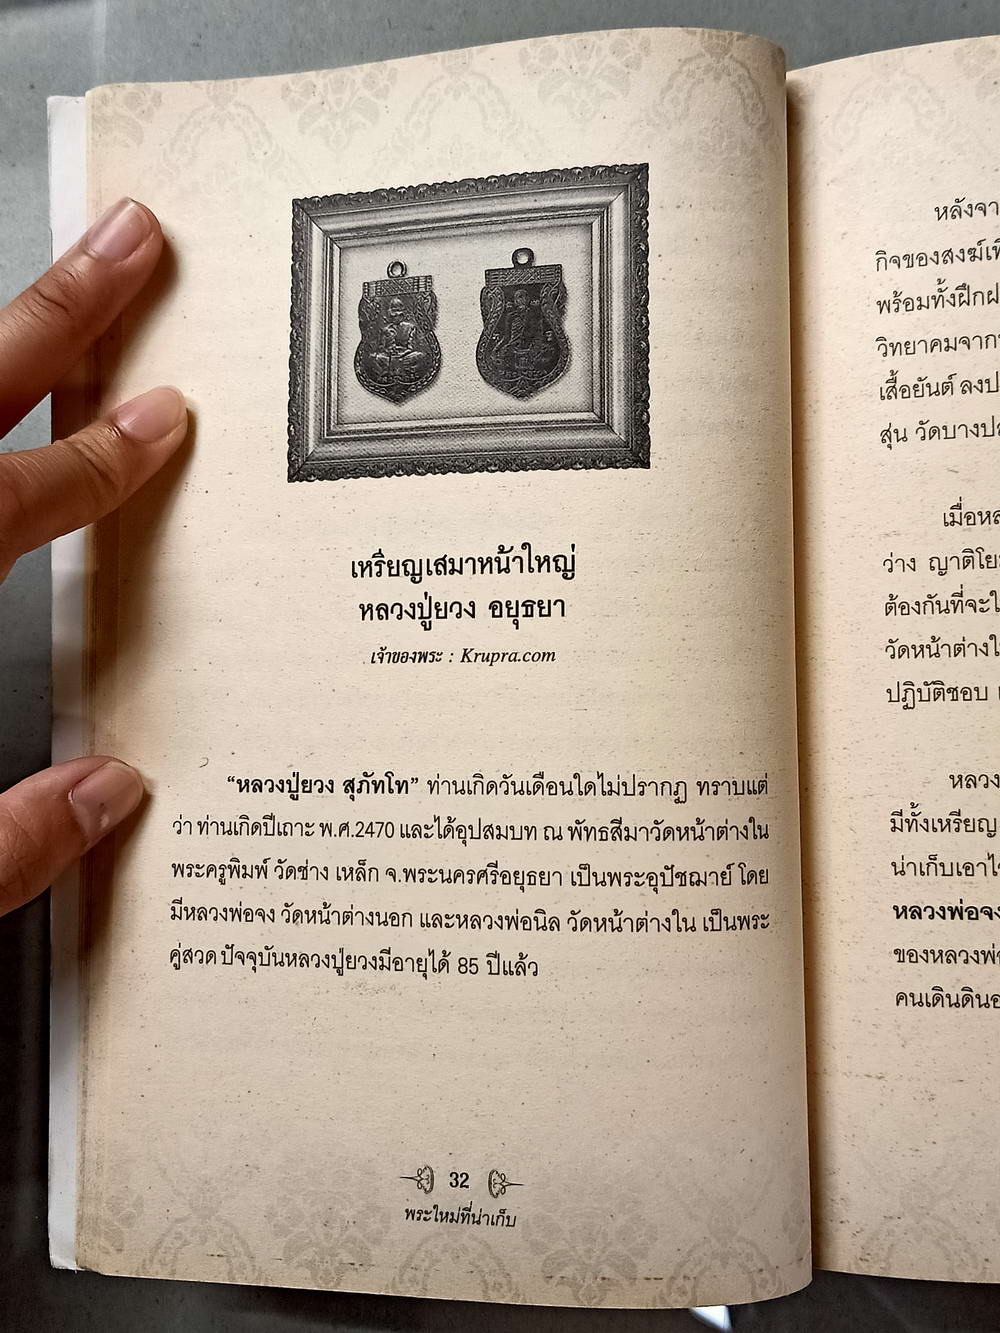 เหรียญเสมาหน้าใหญ่
หลวงปู่ยวง อยุธยา
เจ้าของพระ : Krupra.com
“หลวงปู่ยวง สุภัทโท” ท่านเกิดวันเดือนใดไม่ปรากฏ ทราบแต่
ว่า ท่านเกิดปีเถาะ พ.ศ.2470 และได้อุปสมบท ณ พัทธสีมาวัดหน้าต่างใน
พระครูพิมพ์ วัดช่าง เหล็ก จ.พระนครศรีอยุธยา เป็นพระอุปัชฌาย์ โดย
มีหลวงพ่อจง วัดหน้าต่างนอก และหลวงพ่อนิล วัดหน้าต่างใน เป็นพระ
คู่สวด ปัจจุบันหลวงปู่ยวงมีอายุได้ 85 ปีแล้ว
32
พระใหม่ที่น่าเก็บ
หลังจา
กิจของสงฆ์เพิ
พร้อมทั้งฝึกฝ
วิทยาคมจาก
เสื้อยันต์ ลงป
สุ่น วัดบางปล
เมื่อหล
ว่าง ญาติโย
ต้องกันที่จะใ
วัดหน้าต่างใ
ปฏิบัติชอบ
หลวง
มีทั้งเหรียญ
น่าเก็บเอาไ
หลวงพ่อจง
ของหลวงพ่
คนเดินดิน